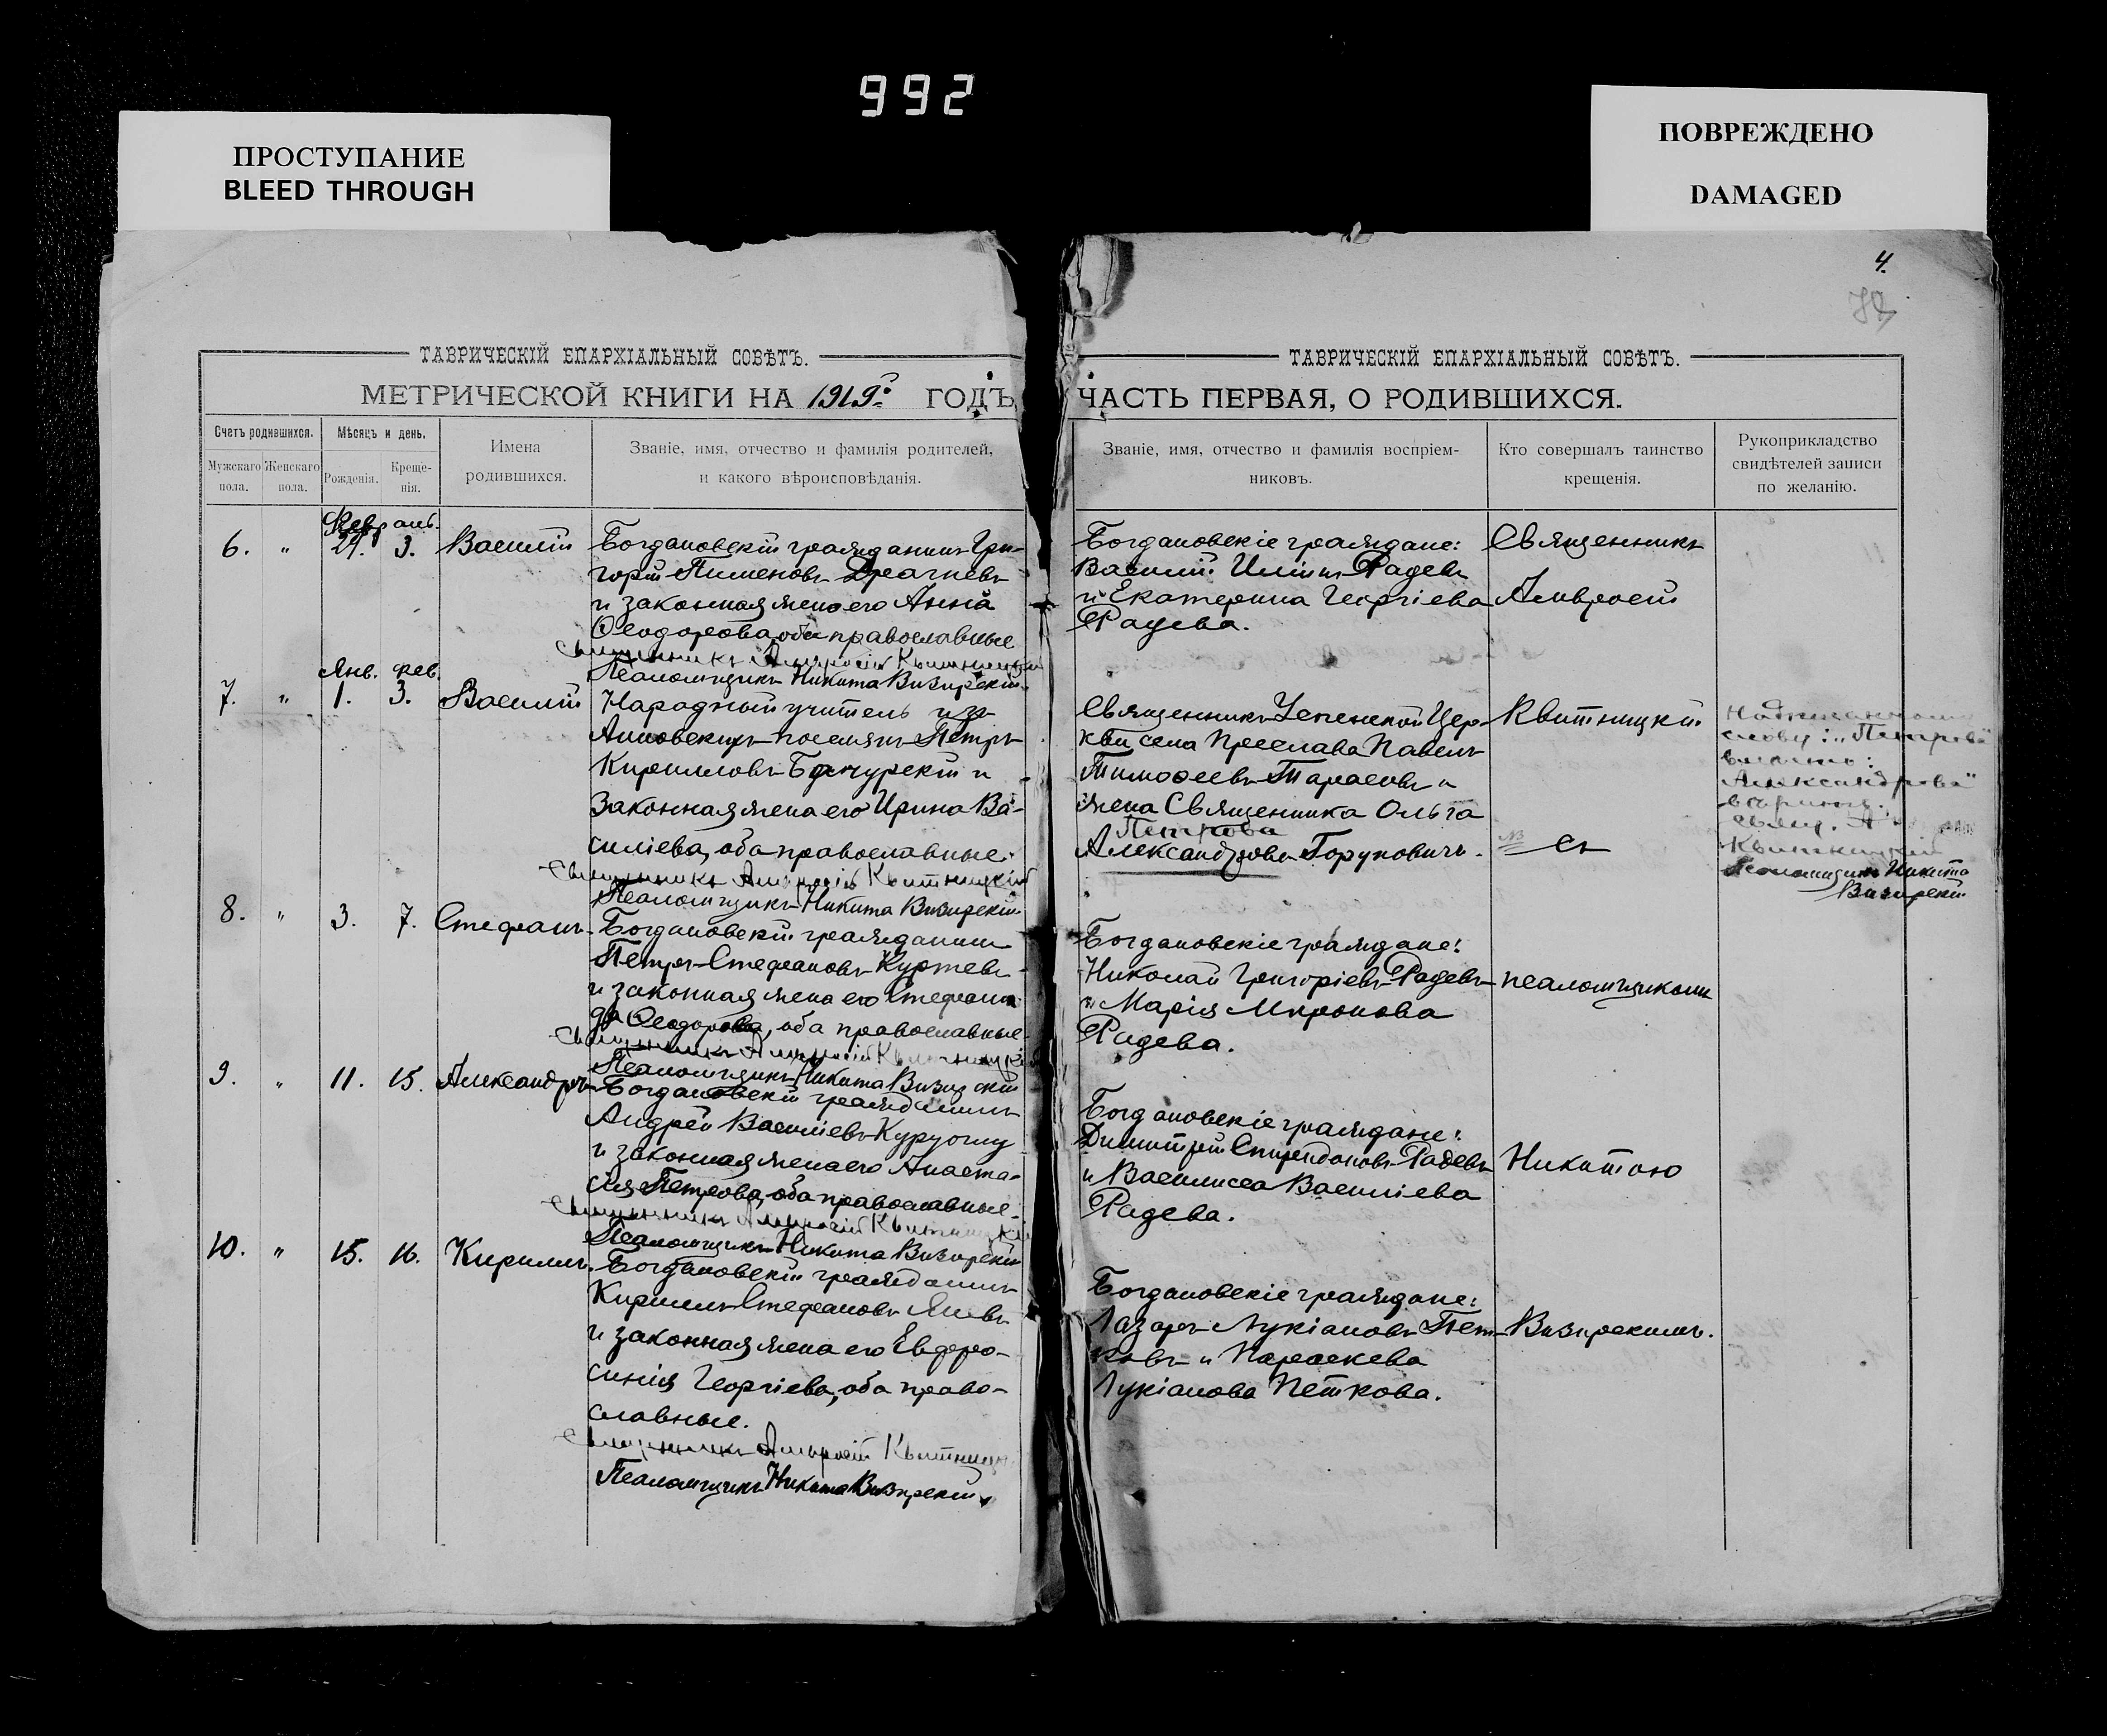 992
ПРОСТУПАНИЕ
BLEED THROUGH
ПОВРЕЖДЕНО
DAMAGED
4.
ТАВРИЧЕСКІЙ ЕПАРХІАЛЬНЫЙ СОВѢТЪ.
МЕТРИЧЕСКОЙ КНИГИ НА 1919 ГОДЪ
Счетъ родившихся.
Мѣсяцъ и день.
Имена
родившихся.
Званіе, имя, отчество и фамилія родителей,
и какого вѣроисповѣданія.
Мужскаго
пола.
Женскаго
пола.
Рожденія.
Креще-
нія.
6. „ 3. Василій
Богдановскій гражданинъ Гри-
горій Пименовъ Драгневъ
и законная жена его Анна
Ѳеодорова, оба православные
Священникъ Амвросій Квитницкій
Псаломщикъ Никита Визирскій.
Янв. Фев.
7. „ 1. 3. Василій
Народный учитель изъ
поселянъ Петръ
Кирилловъ и
законная жена его Ирина Ва-
силіева, оба православные.
Священникъ Амвросій Квитницкій
Псаломщикъ Никита Визирскій
8. „ 3. 7. Стефанъ.
Богдановскій гражданинъ
Петръ Стефановъ Куртевъ
и законная жена его Стефани-
да Ѳеодорова, оба православные.
Священникъ Амвросій Квитницкій
Псаломщикъ Никита Визирскій
9. „ 11. 15. Александръ
Богдановскій гражданинъ
Андрей Василіевъ Куруогλу
и законная жена его Анаста-
сія Петрова, оба православные.
Священникъ Амвросій Квитницкій
Псаломщикъ Никита Визирскій
10. „ 15. 16. Кириллъ.
Богдановскій гражданинъ
Кириллъ Стефановъ
и законная жена его Евфро-
синія Георгіева, оба право-
славные.
Священникъ Амвросій Квитницкій
Псаломщикъ Никита Визирскій.
ТАВРИЧЕСКІЙ ЕПАРХІАЛЬНЫЙ СОВѢТЪ.
ЧАСТЬ ПЕРВАЯ, О РОДИВШИХСЯ.
Званіе, имя, отчество и фамилія воспріем-
никовъ.
Кто совершалъ таинство
крещенія.
Рукоприкладство
свидѣтелей записи
по желанію.
Богдановскіе граждане:
Василій Иліинъ Радевъ
и Екатерина Георгіева
Радева.
Священникъ
Амвросій
Священникъ Успенской Цер-
кви села Преслава Павелъ
Тимоѳеевъ Тарасовъ и
жена Священника Ольга
Петрова
Александрова Горуновичъ.
Квитницкій
съ
слову: „Петрова"
вмѣсто:
„Александрова"
вѣрить.
Свящ. А
Квитницкій
Псаломщикъ Никита
Визирскій
Богдановскіе граждане:
Николай Григоріевъ Радевъ
и Марія Миронова
Радева.
псаломщикомъ
Богдановскіе граждане:
Димитрій Спиридоновъ Радевъ
и Василисса Василіева
Радева.
Никитою
Богдановскіе граждане:
Лазарь Лукіановъ Пет-
ковъ и Параскева
Лукіанова Петкова.
Визирскимъ.